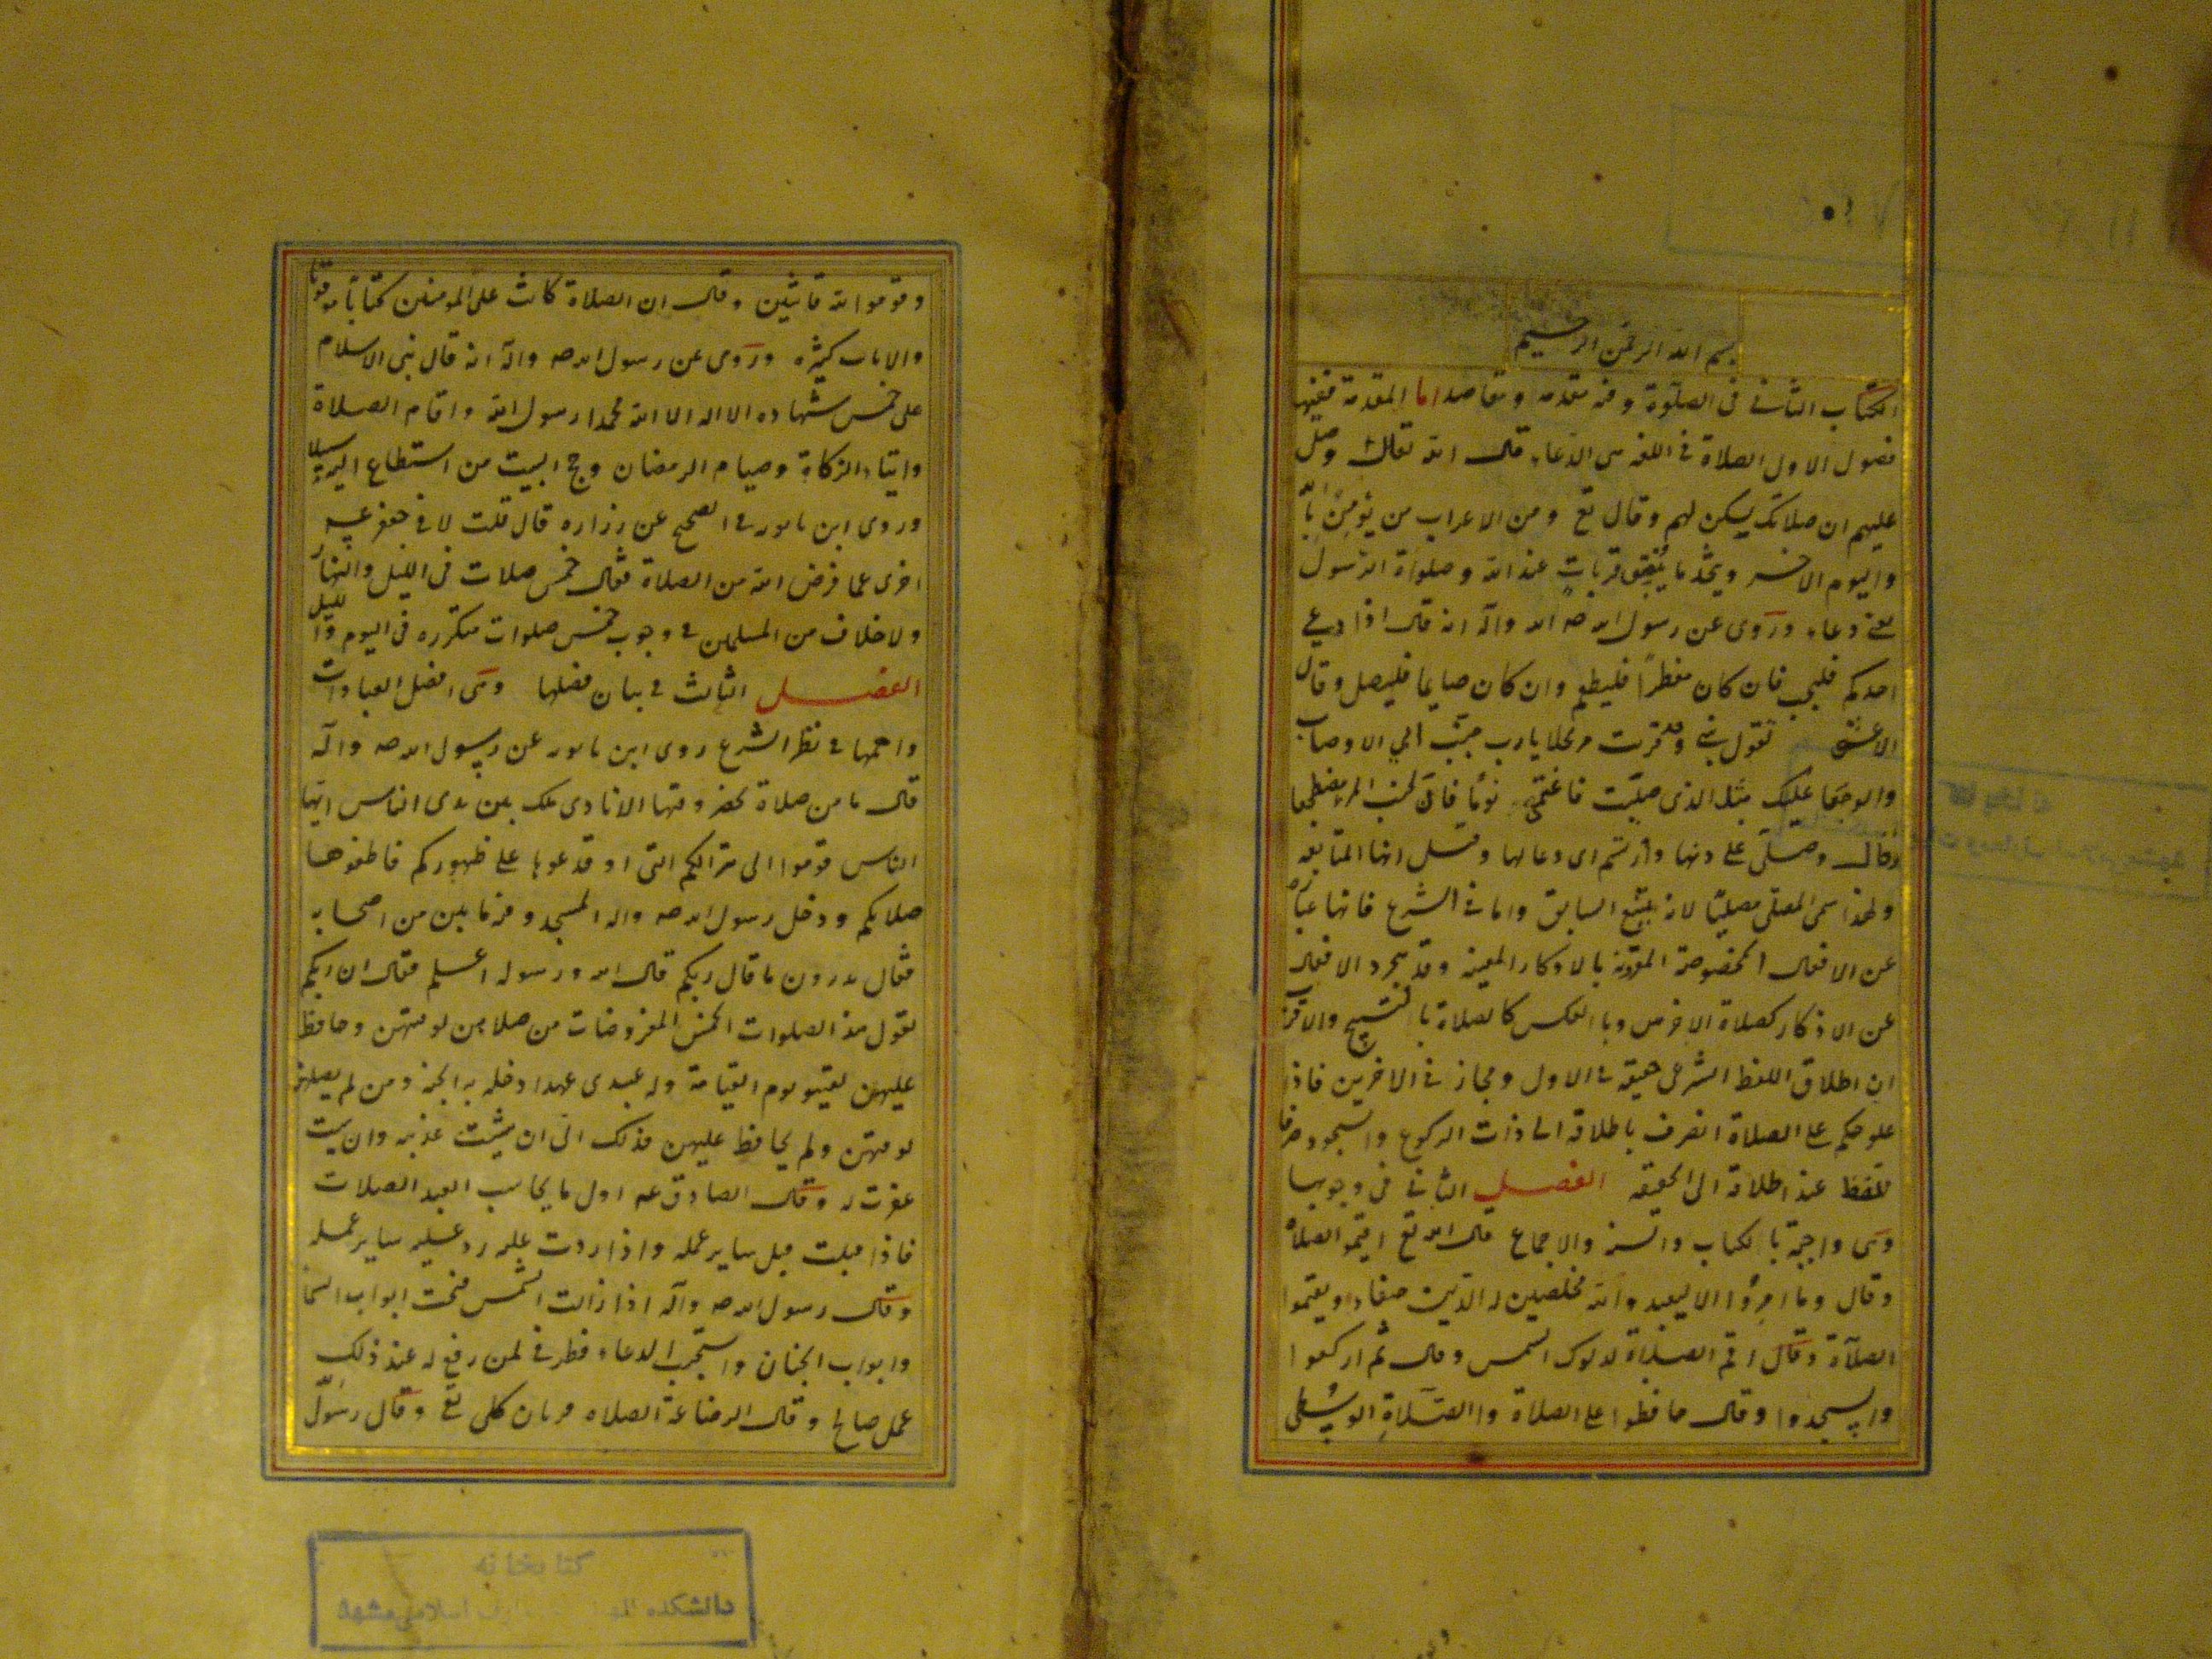 بسم الله الرحمن الرحيم
الكتاب الثاني في الصلوة وفيه مقدمه ومقاصد اما المقدمة ففيها
فصول الاول الصلاة في اللغه هى الدعاء قال الله تعالى وصل
عليهم ان صلاتك سكن لهم وقال تع ومن الاعراب من يؤمن بالله
واليوم الاخر ويتخذ ما ينفق قربات عند الله وصلواة الرسول
يعني دعاءه وروى عن رسول الله صه الله واله انه قال اذا دعي
احدكم فليجب فان كان مفطرا فليطعم وان كان صايما فليصل وقال
الاعشى تقول بنتي وقد قربت مرتحلا يارب جنب ابي الاوصاب
والوجعا عليك مثل الذى صليت فاغتمضي نوما فان لجنب المرء مضطجعا
وقال وصلى على دنها وارتسم اى دعا لها وقيل انها المتابعه
ولهذا سمى المصلى مصليا لانه يتبع السابق واما في الشرع فانها عبارة
عن الافعال المخصوصة المقترنة بالاذكار المعينه وقد تجرد الافعال
عن الاذكار كصلاة الاخرس وبالعكس كالصلاة بالتسبيح والاقرب
ان اطلاق اللفظ الشرعى حقيقه في الاول ومجاز في الاخرين فاذا
علق حكم على الصلاة انصرف باطلاقه الى ذات الركوع والسجود صرفا
للفظ عند اطلاقه الى الحقيقه الفصل الثاني في وجوبها
وهى واجبة بالكتاب والسنه والاجماع قال الله تع اقيموا الصلاة
وقال وما امروا الا ليعبدوا الله مخلصين له الدين حنفاء ويقيموا
الصلاة وقال اقم الصلاة لدلوك الشمس وقال ثم اركعوا
واسجدوا وقال حافظوا على الصلاة والصلاة الوسطى
وقوموا لله قانتين وقال ان الصلاة كانت على المومنين كتابا موقوتا
والايات كثيره وروى عن رسول الله صه واله انه قال بنى الاسلام
على خمس شهاده الا اله الا الله محمدا رسول الله واقام الصلاة
وايتاء الزكاة وصيام الرمضان وحج البيت من استطاع اليه سبيلا
وروى ابن بابويه في الصحيح عن زراره قال قلت لابي جعفر عيه
اخبرنى عما فرض الله من الصلاة فقال خمس صلات في الليل والنهار
ولا خلاف بين المسلمين في وجوب خمس صلوات متكرره في اليوم والليل
الفصل الثالث في بيان فضلها وهى افضل العبادات
واهمها في نظر الشرع روى ابن بابويه عن رسول الله صه واله
قال ما من صلاة يحضر وقتها الا نادى ملك بين يدى الناس ايها
الناس قوموا الى نيرانكم التى اوقدتموها على ظهوركم فاطفوها
صلاتكم ودخل رسول الله صه واله المسجد وفيه ناس من اصحابه
فقال تدرون ما قال ربكم قال الله ورسوله اعلم فقال ان ربكم
يقول هذه الصلوات الخمس المفروضات من صلاهن لوقتهن وحافظ
عليهن لقيني يوم القيامة وله عندى عهدا ادخله به الجنه ومن لم يصلهن
لوقتهن ولم يحافظ عليهن فذلك الى ان شيت عذبته وان شيت
غفرت له وقال الصادق عه اول ما يحاسب العبد الصلات
فاذا قبلت قبل ساير عمله واذا ردت عليه رد عليه ساير عمله
وقال رسول الله صه واله اذا زالت الشمس فتحت ابواب السماء
وابواب الجنان واستجيب الدعاء فطوبى لمن رفع له عند ذلك
عمل صالح وقال الرضا عه الصلاه قربان كل تقى وقال رسول
كتابخانه
دانشكده الهيات و معارف اسلامى مشهد